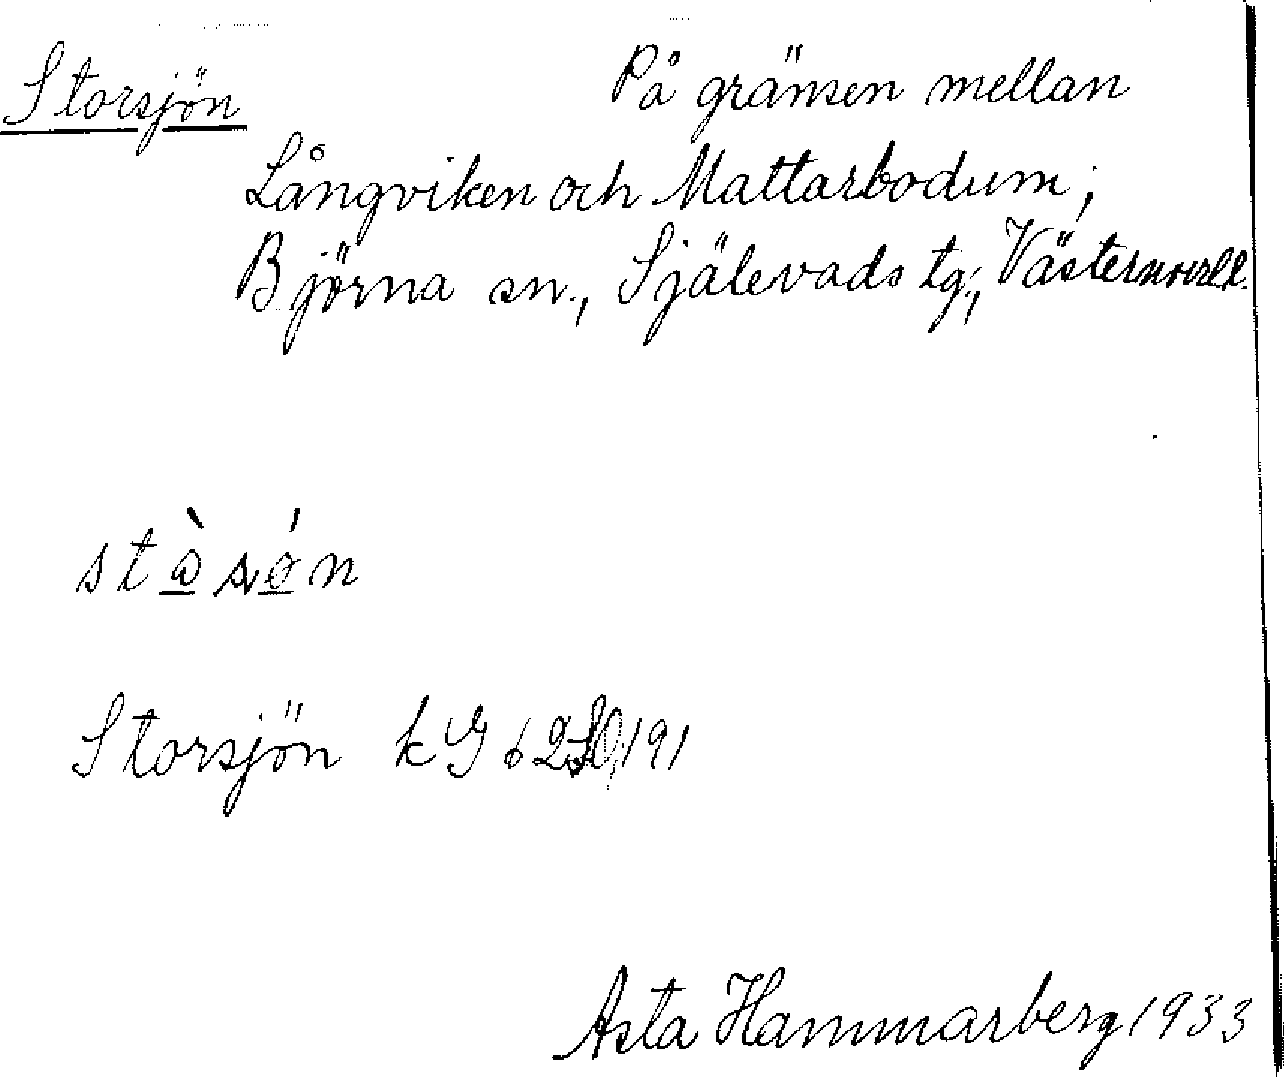 Storsjön På gränsen mellan
Långviken och Mattarbodum;
Björna sn., Själevads tg., Västernorrl.
Storsjön kG 62 SO, 191
Asta Hammarberg 1933